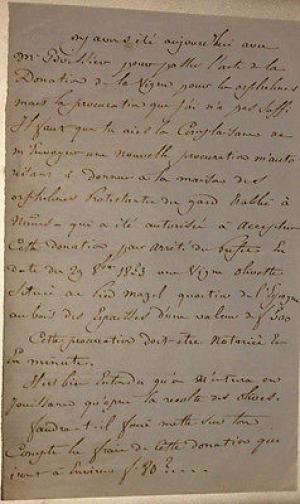 ay avons été aujourd'hui avec
Mr pour passer l'acte de la
Donation de la Vigne pour les orphelines
mais la procuration que j'ai n'a pas suffi
Il faut que tu aies la Complaisance de
m'Envoyer une nouvelle procuration m'auto
risant à Donner à la maison des
orphelines Protestantes du gard établie à
Nîmes - qui a été autorisée à accepter
Cette donation par arrêté du préfet En
date du 29 8bre 1853 une Vigne olivette
Située au mazel quartier de
au bois des Espeisses d'une valeur de f 500
Cette procuration doit être Notariée &
En minute.
Il est bien Entendu qu'on N'entrera en
Jouissance qu'après la récolte des olives.
faudra-t-il faire mettre sur ton
Compte les frais de Cette donation qui
iront à Environ f. 50?